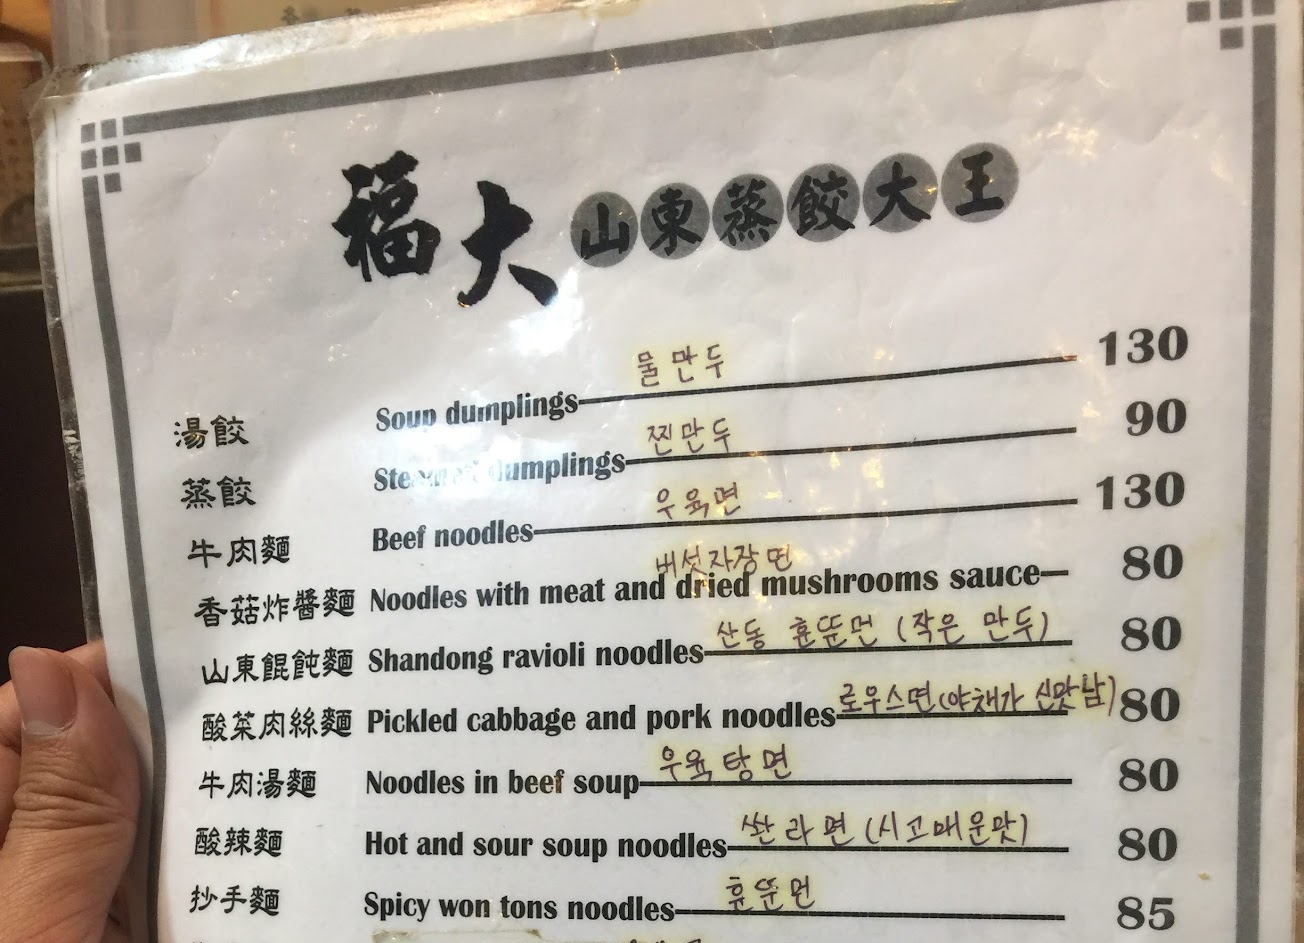 福大 山東蒸餃大王
물만두
湯餃 Soup dumplings 130
찐만두
蒸餃 Steamed dumplings 90
우육면
牛肉麵 Beef noodles 130
버섯자장면
香菇炸醬麵 Noodles with meat and dried mushrooms sauce 80
산동 훈뚠면 (작은 만두)
山東餛飩麵 Shandong ravioli noodles 80
로우스면(야채가 신맛남)
酸菜肉絲麵 Pickled cabbage and pork noodles 80
우육탕면
牛肉湯麵 Noodles in beef soup 80
싼라면(시고매운맛)
酸辣麵 Hot and sour soup noodles 80
훈뚠면
抄手麵 Spicy won tons noodles 85